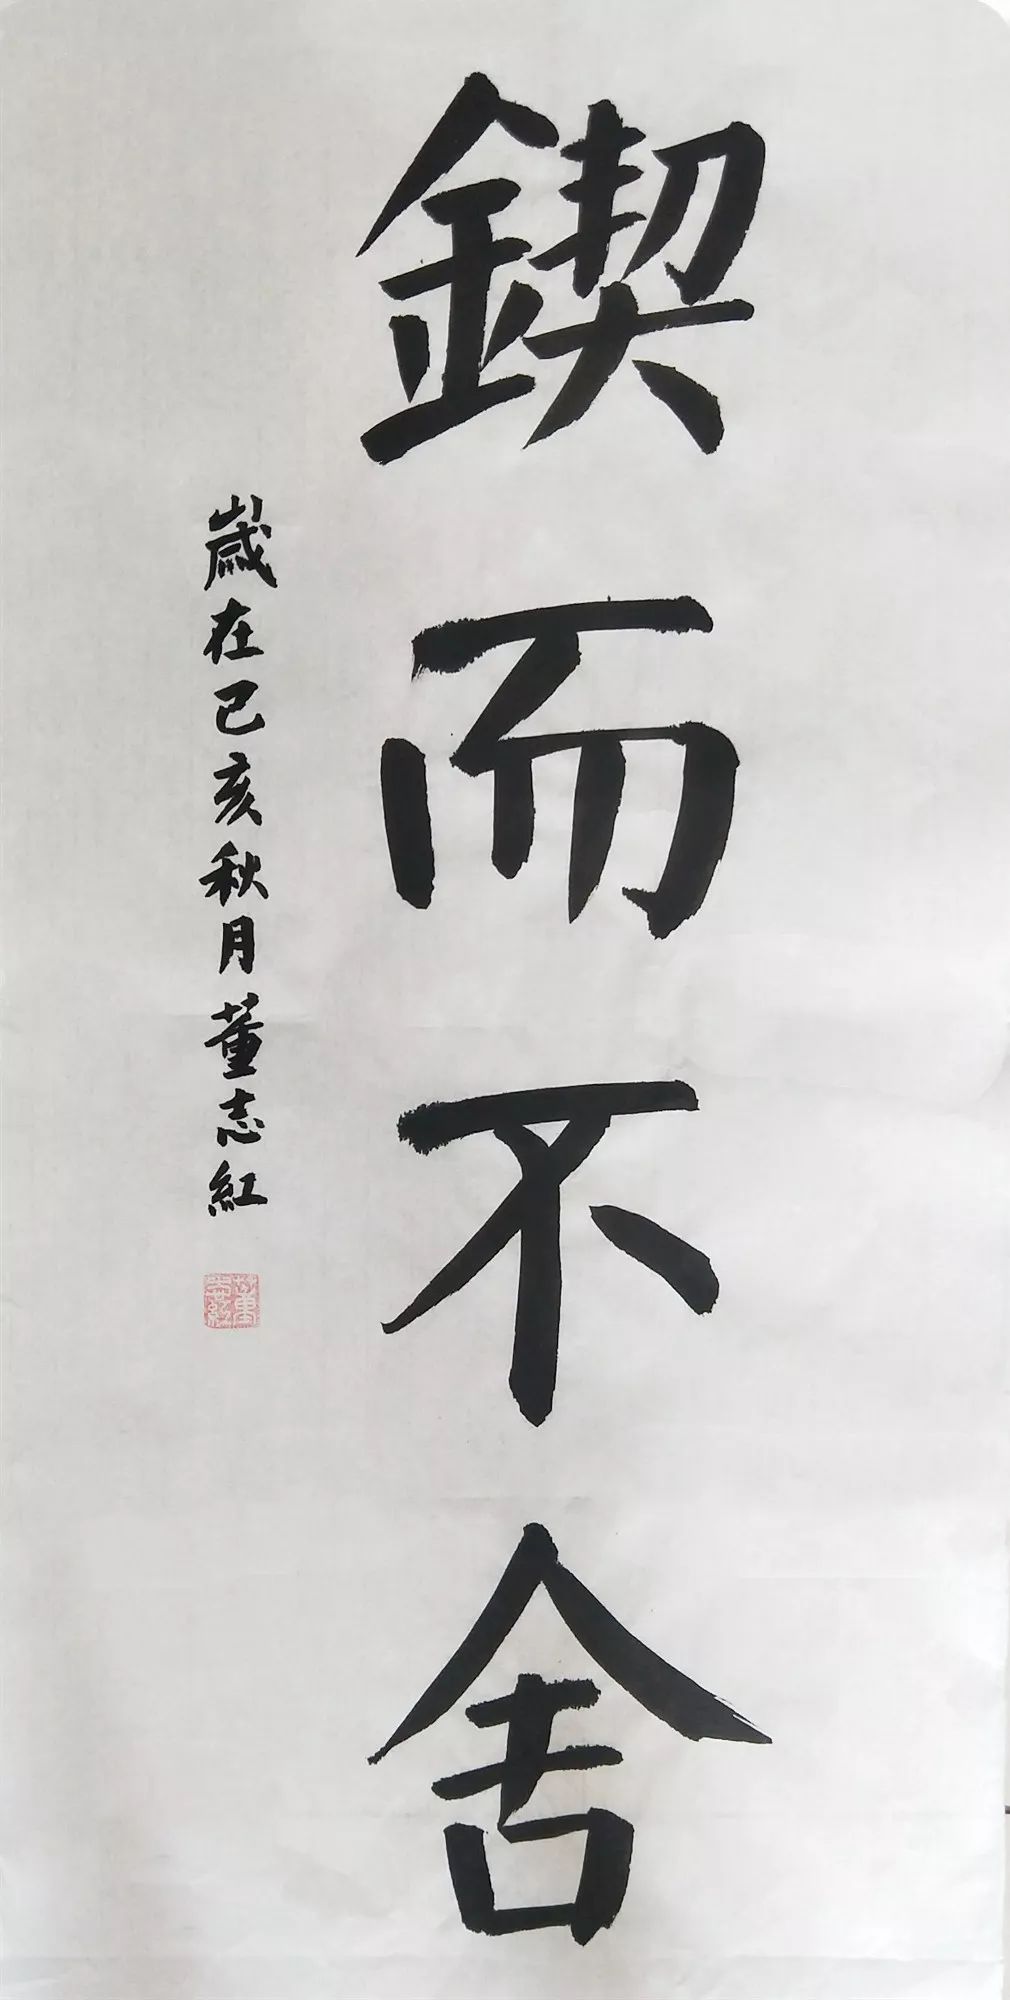 鍥而不舍
歲在己亥秋月董志紅
董志紅